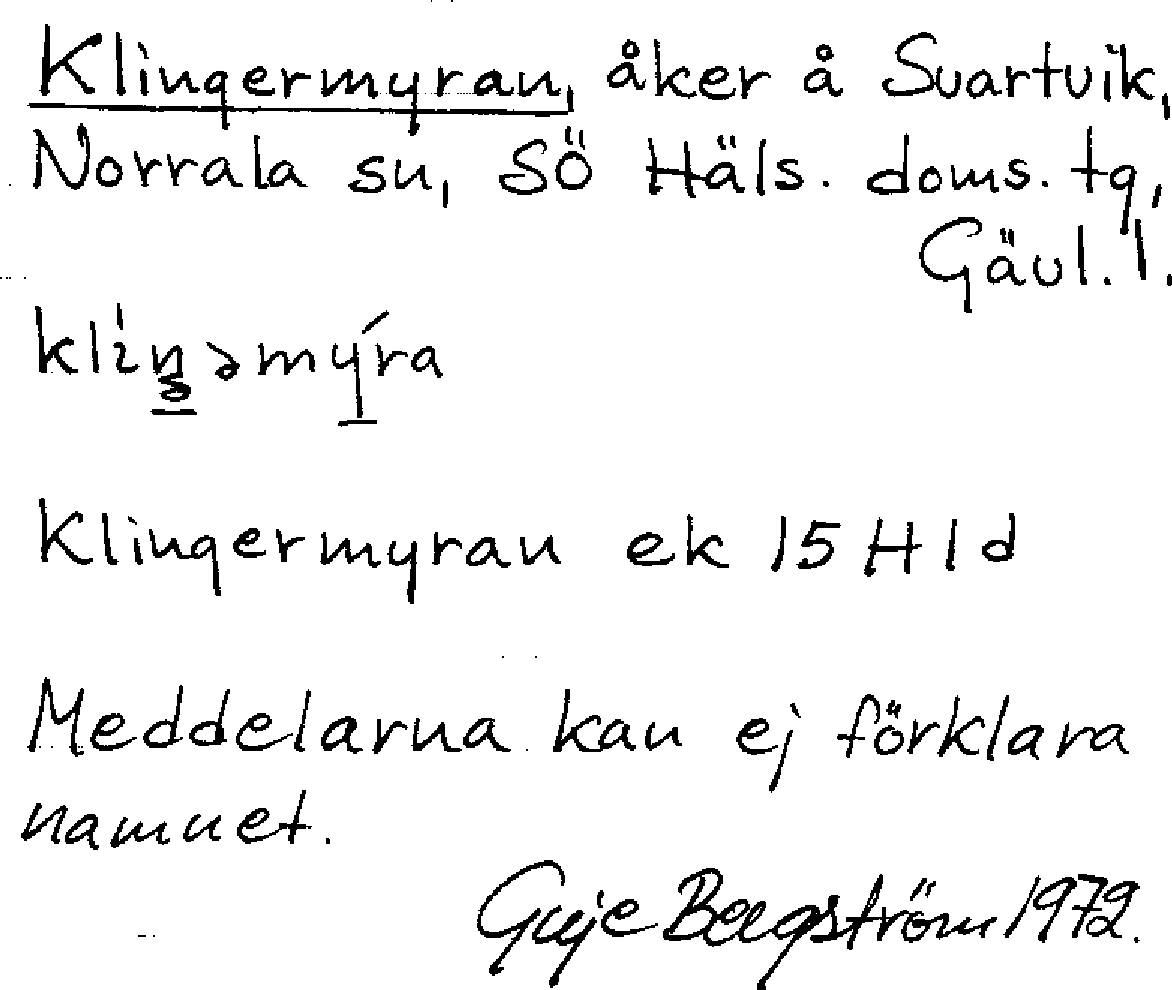 Klingermyran, åker å Svartvik,
Norrala sn, SÖ Häls. doms. tg,
Gävl. l.
Klingermyran ek 15 H 1 d
Meddelarna kan ej förklara
namnet.
Bergström 1972.